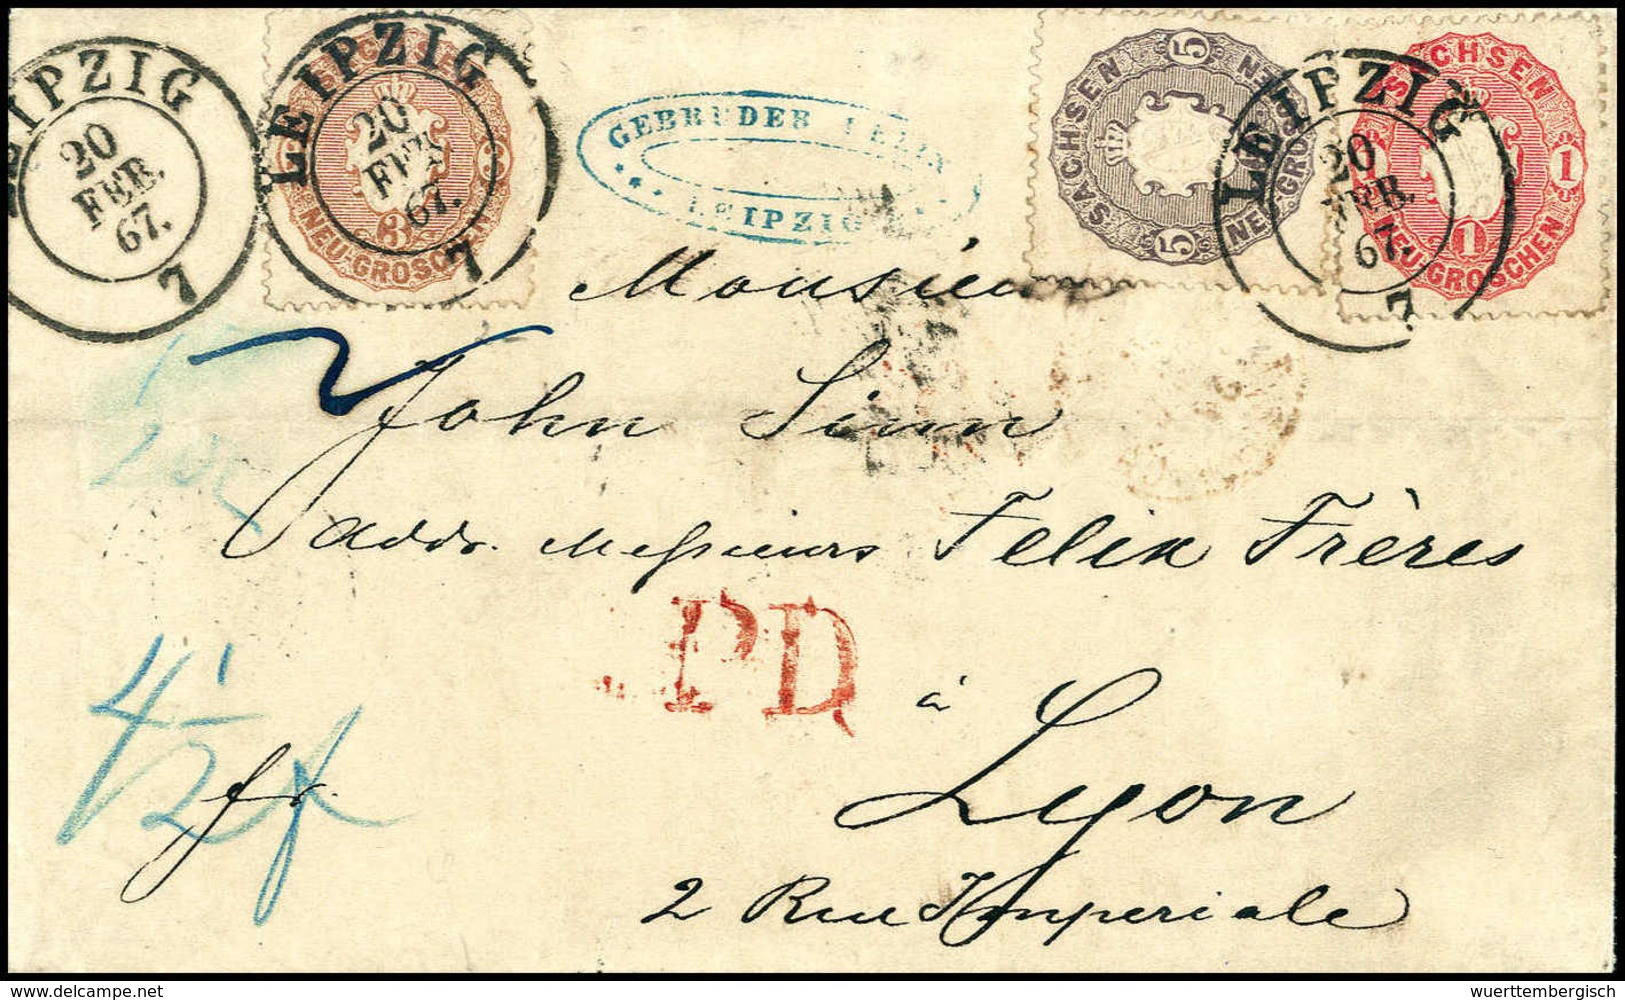 LEIPZIG
20
FEB.
67.
7
LEIPZIG
20
FEB.
67.
7
3
NEU-GROSCHEN
GEBRÜDER
LEIPZIG
SACHSEN
5
5
NEU-GROSCHEN
LEIPZIG
20
FEB.
67.
7
SACHSEN
1
1
NEU-GROSCHEN
Monsieur
John Sinn
addr. Messieurs Felix Frères
PD
à
Lyon
4 1/2
fr.
2 Rue Impériale
www.delcampe.net
wuerttembergisch